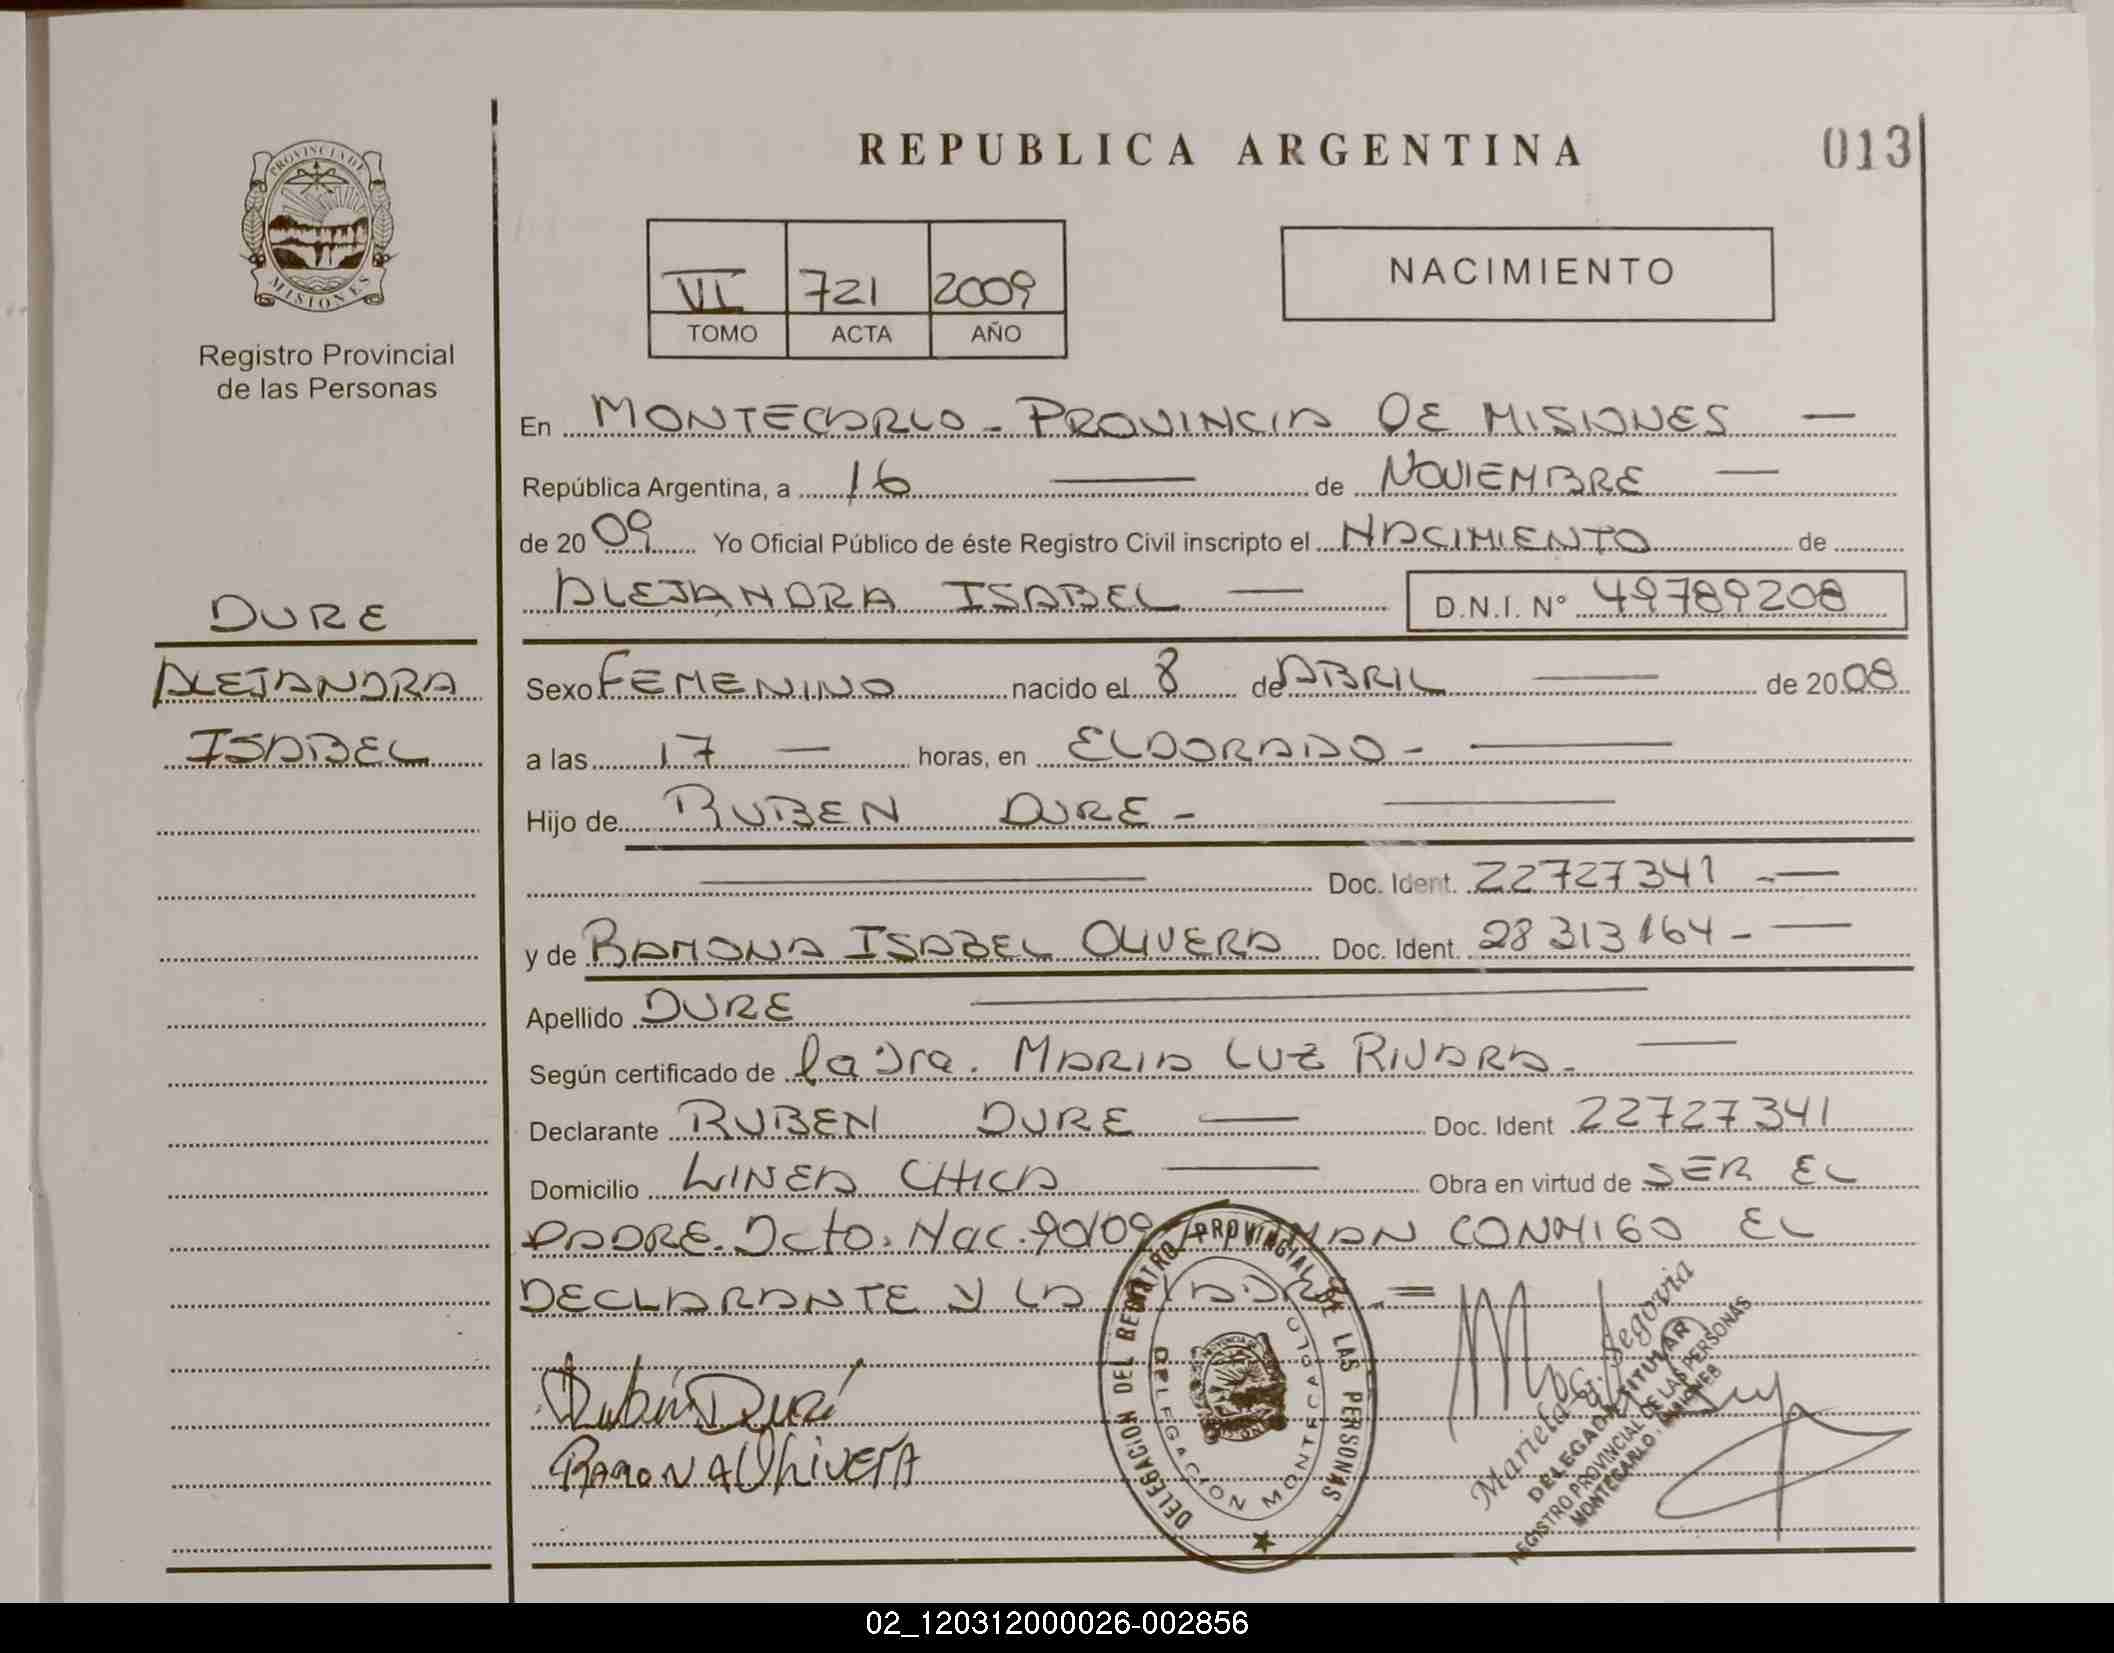 REPUBLICA ARGENTINA
013
PROVINCIA DE
MISIONES
Registro Provincial
de las Personas
VI 721 2009
TOMO ACTA AÑO
NACIMIENTO
En MONTECARLO - PROVINCIA DE MISIONES —
República Argentina, a 16 — de NOVIEMBRE —
de 2009 Yo Oficial Público de éste Registro Civil inscripto el NACIMIENTO de
ALEJANDRA ISABEL — D.N.I. N° 49789208
DURE
ALEJANDRA
ISABEL
Sexo FEMENINO nacido el 8 de ABRIL — de 2008
a las 17 — horas, en ELDORADO - —
Hijo de RUBEN DURE - —
— Doc. Ident. 22727341 - —
y de RAMONA ISABEL OLIVERA Doc. Ident. 28313164 - —
Apellido DURE —
Según certificado de la Dra. MARIA LUZ RIVARA - —
Declarante RUBEN DURE — Doc. Ident 22727341
Domicilio LINEA CHICA — Obra en virtud de SER EL
PADRE. Dcto. Nac. 90/09 CONMIGO EL
DECLARANTE Y LA MADRE. =
Rubén Duré
RAMONA OLIVERA
DELEGACION DEL REGISTRO PROVINCIAL DE LAS PERSONAS
DELEGACION MONTECARLO
Mariela G. Segovia
DELEGADA TITULAR
REGISTRO PROVINCIAL DE LAS PERSONAS
MONTECARLO - MISIONES
02_120312000026-002856